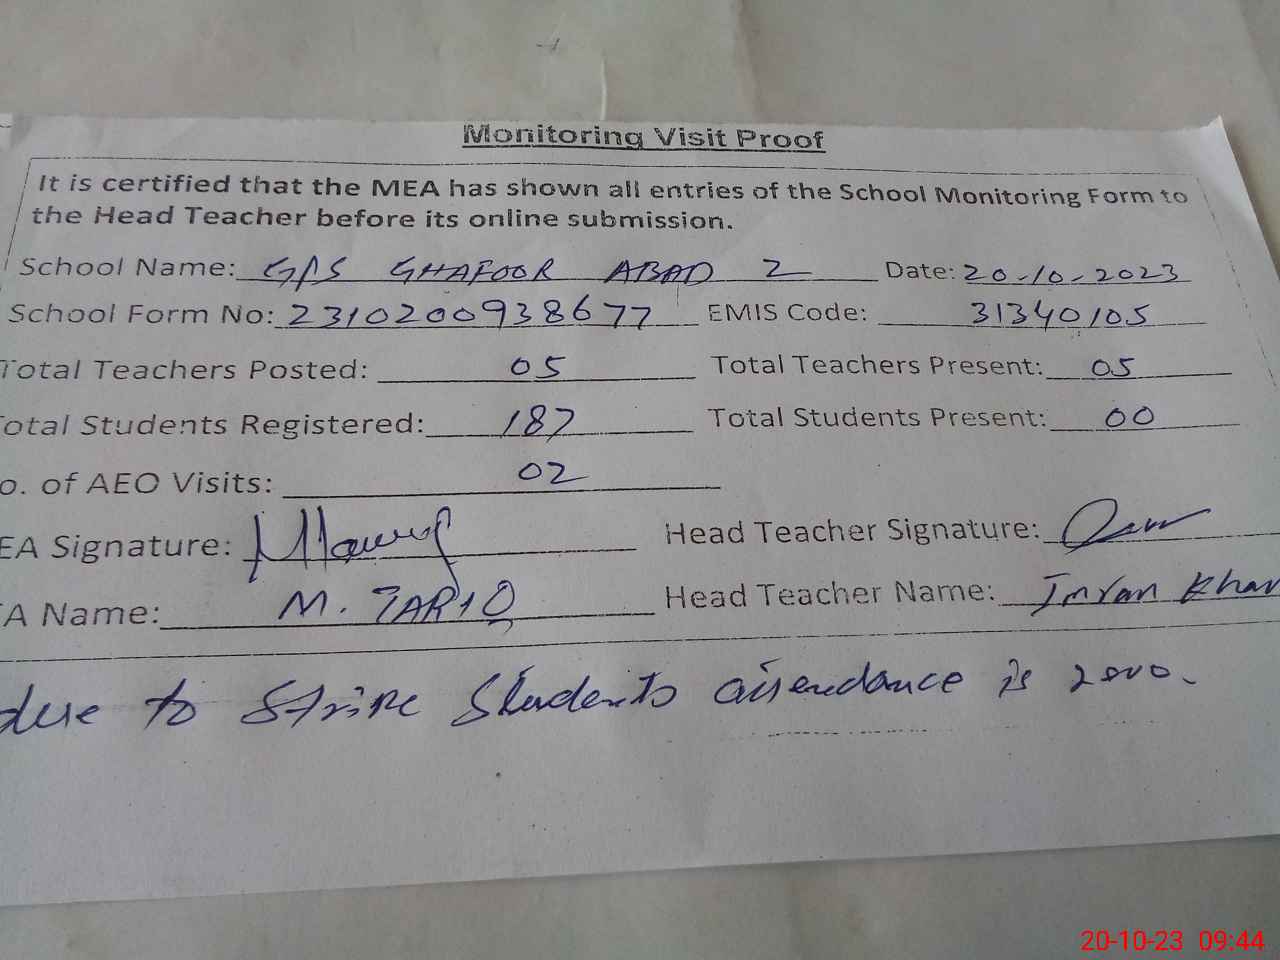 Monitoring Visit Proof
It is certified that the MEA has shown all entries of the School Monitoring Form to
the Head Teacher before its online submission.
School Name: GPS GHAFOOR ABAD 2 Date: 20-10-2023
School Form No: 2310200938677 EMIS Code: 31340105
Total Teachers Posted: 05 Total Teachers Present: 05
otal Students Registered: 187 Total Students Present: 00
o. of AEO Visits: 02
EA Signature: Head Teacher Signature:
A Name: M. TARIQ Head Teacher Name: Imran Khan
due to Strike Students attendance is zero.
20-10-23 09:44